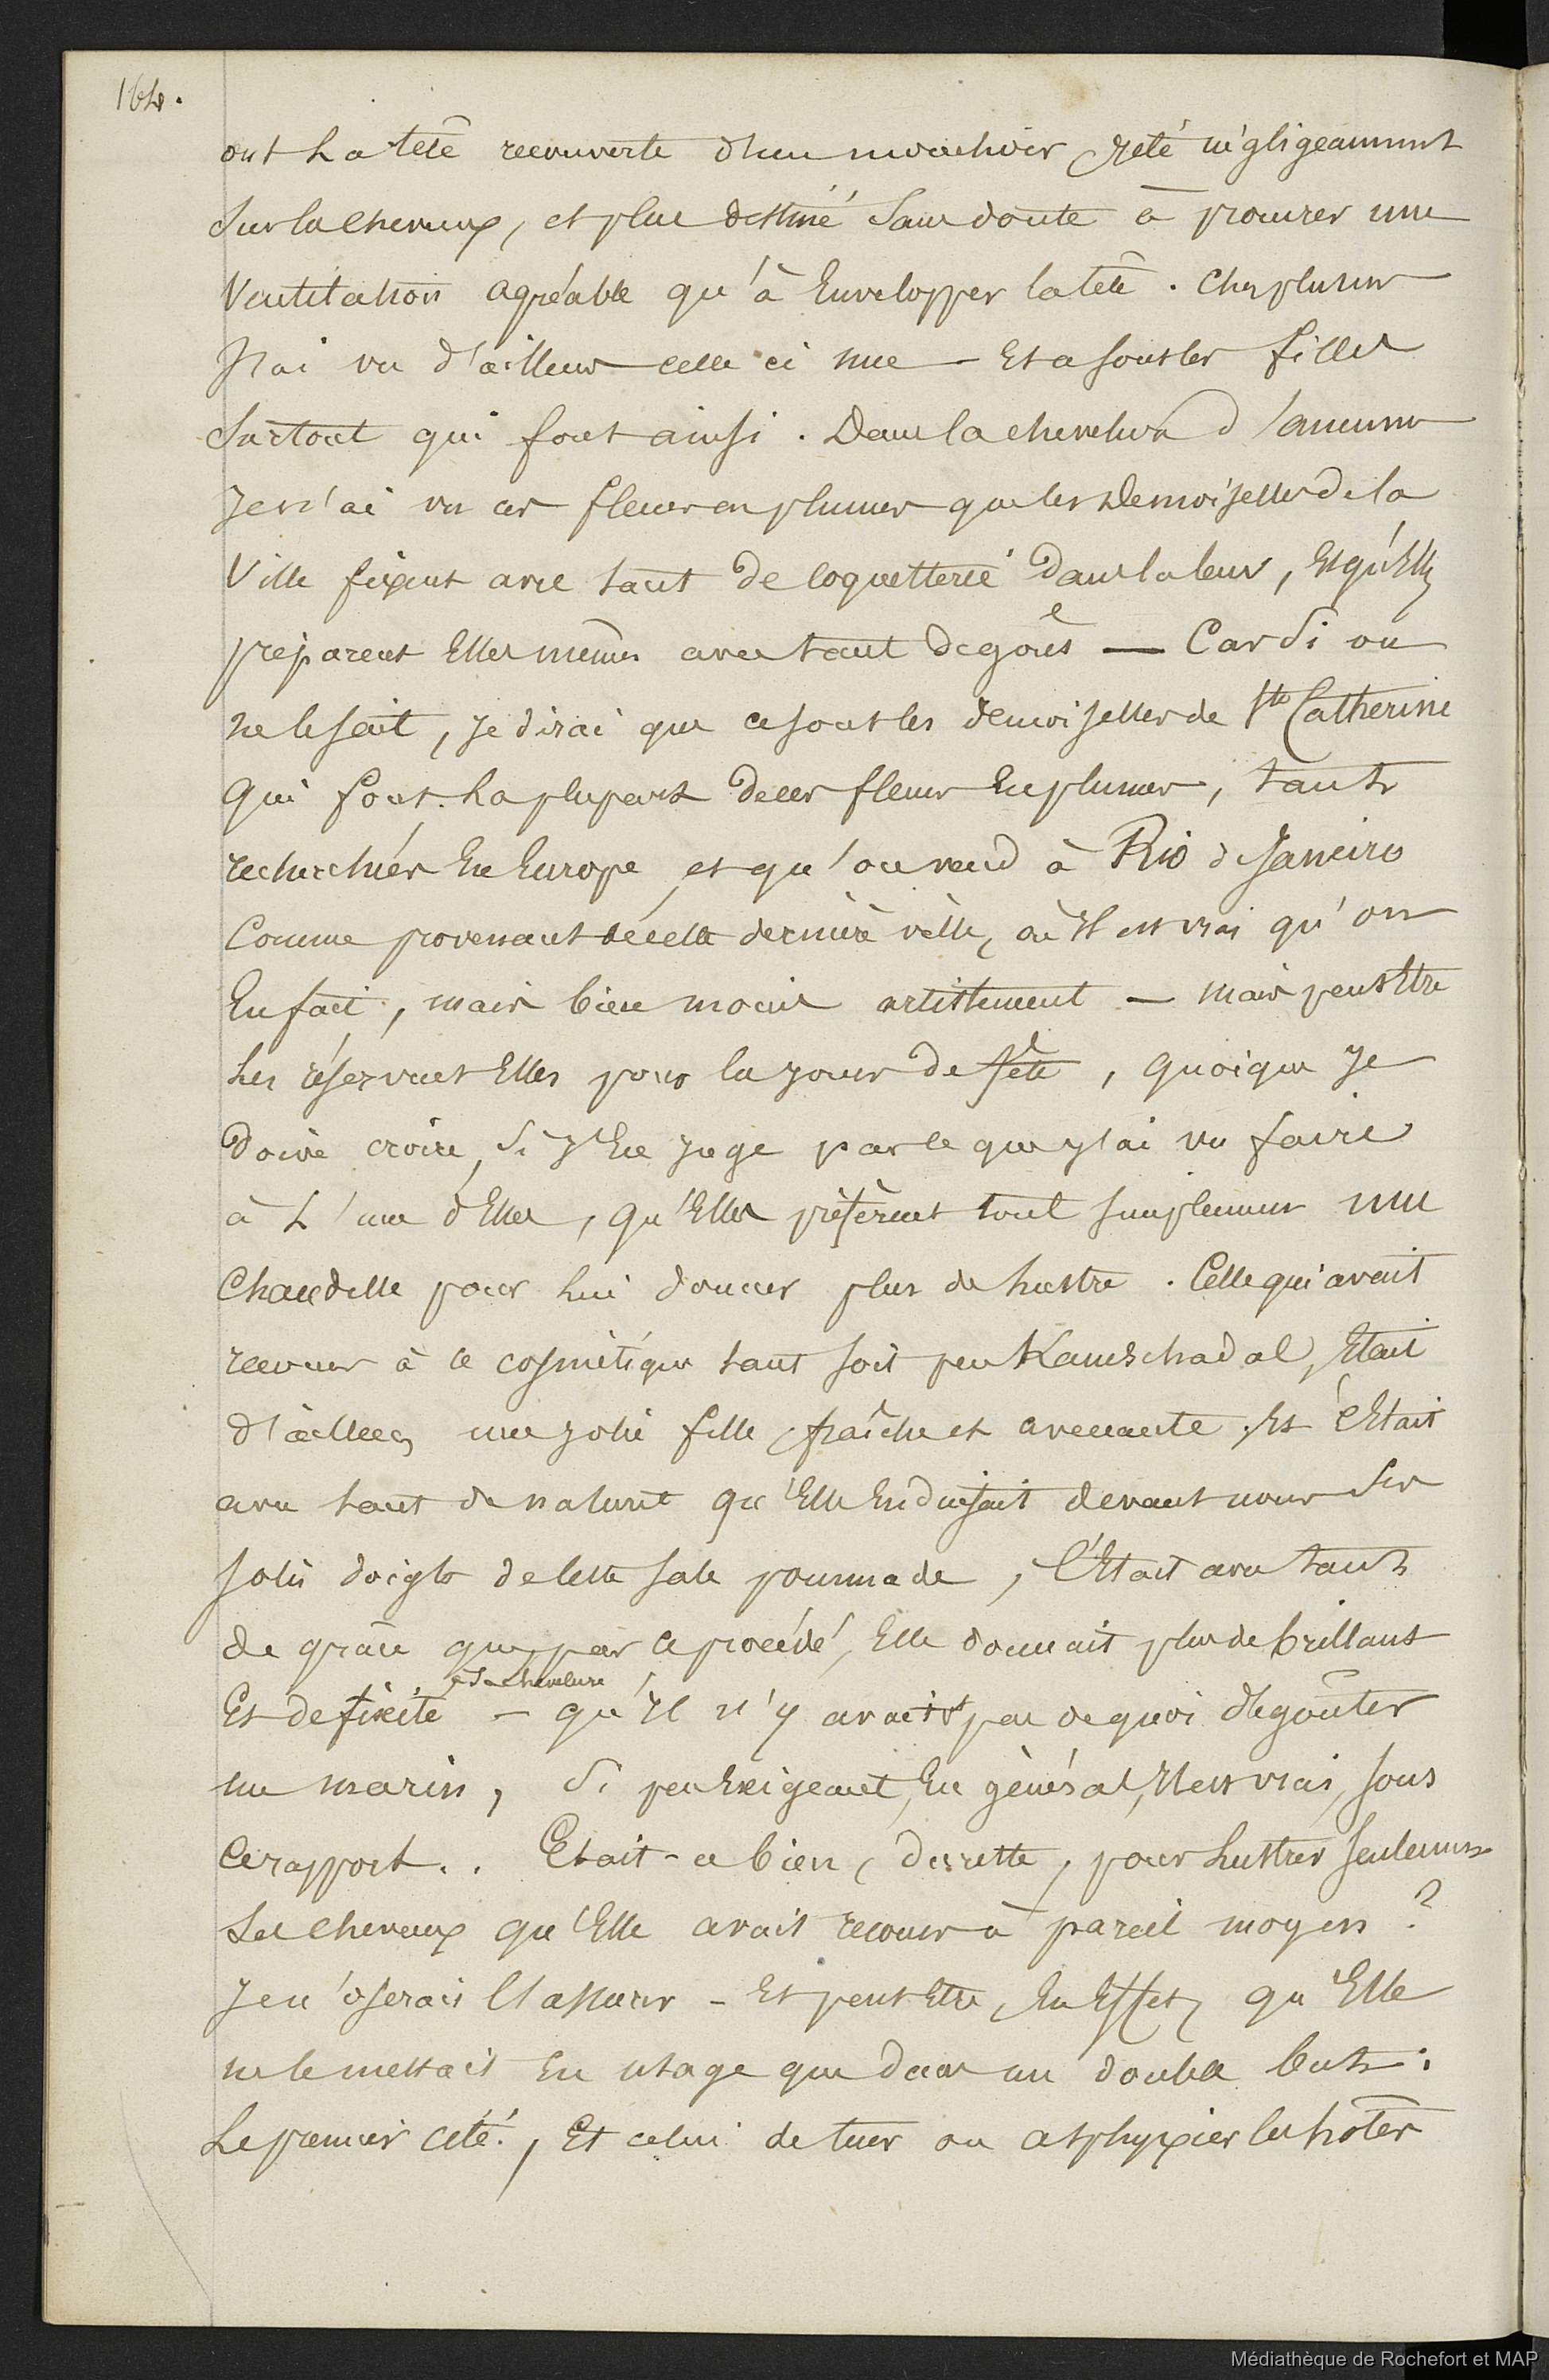 164.
ont la tête recouverte d'un mouchoir jeté négligeamment
sur les cheveux, et plus destiné sans doute à procurer une
ventilation agréable qu'à envelopper la tête. Chez plusieurs
j'ai vu d'ailleurs celle ci nue – et ce sont les filles
surtout qui font ainsi. Dans la chevelure d'aucune
je n'ai vu ces fleurs en plumes que les demoiselles de la
ville fixent avec tant de coquetterie dans la leur, et qu'elles
préparent elles mêmes avec tant de goût — Car si on
ne le sait, je dirai que ce sont les demoiselles de Ste Catherine
qui font la plupart de ces fleurs en plumes, tant
recherchées en Europe, et qu'on vend à Rio de Janeiro
comme provenant de cette dernière ville, où il est vrai qu'on
en fait, mais bien moins artistement – mais peut être
les réservent elles pour les jours de fête, quoique je
doive croire, si j'en juge par ce que j'ai vu faire
à l'une d'elles, qu'elles préfèrent tout simplement une
chandelle pour lui donner plus de lustre. Celle qui avait
recours à ce cosmétique tant soit peu Kamschadal, était
d'ailleurs une jolie fille, fraîche et avenante. Et c'était
avec tant de naturel qu'elle enduisait devant nous ses
jolis doigts de cette sale pommade, c'était avec tant
de grâce que, par ce procédé, elle donnait plus de brillant
et de fixité à sa chevelure – qu'il n'y avait pas de quoi dégoûter
un marin, si peu exigeant, en général, il est vrai, sous
ce rapport.. Etait-ce bien, du reste, pour lustrer seulement
ses cheveux qu'elle avait recours à pareil moyen ?
Je n'oserais l'assurer – et peut être, en effet, qu'elle
ne le mettait en usage que dans un double but :
Le premier cité, et celui de tuer ou asphyxier les hôtes
Médiathèque de Rochefort et MAP